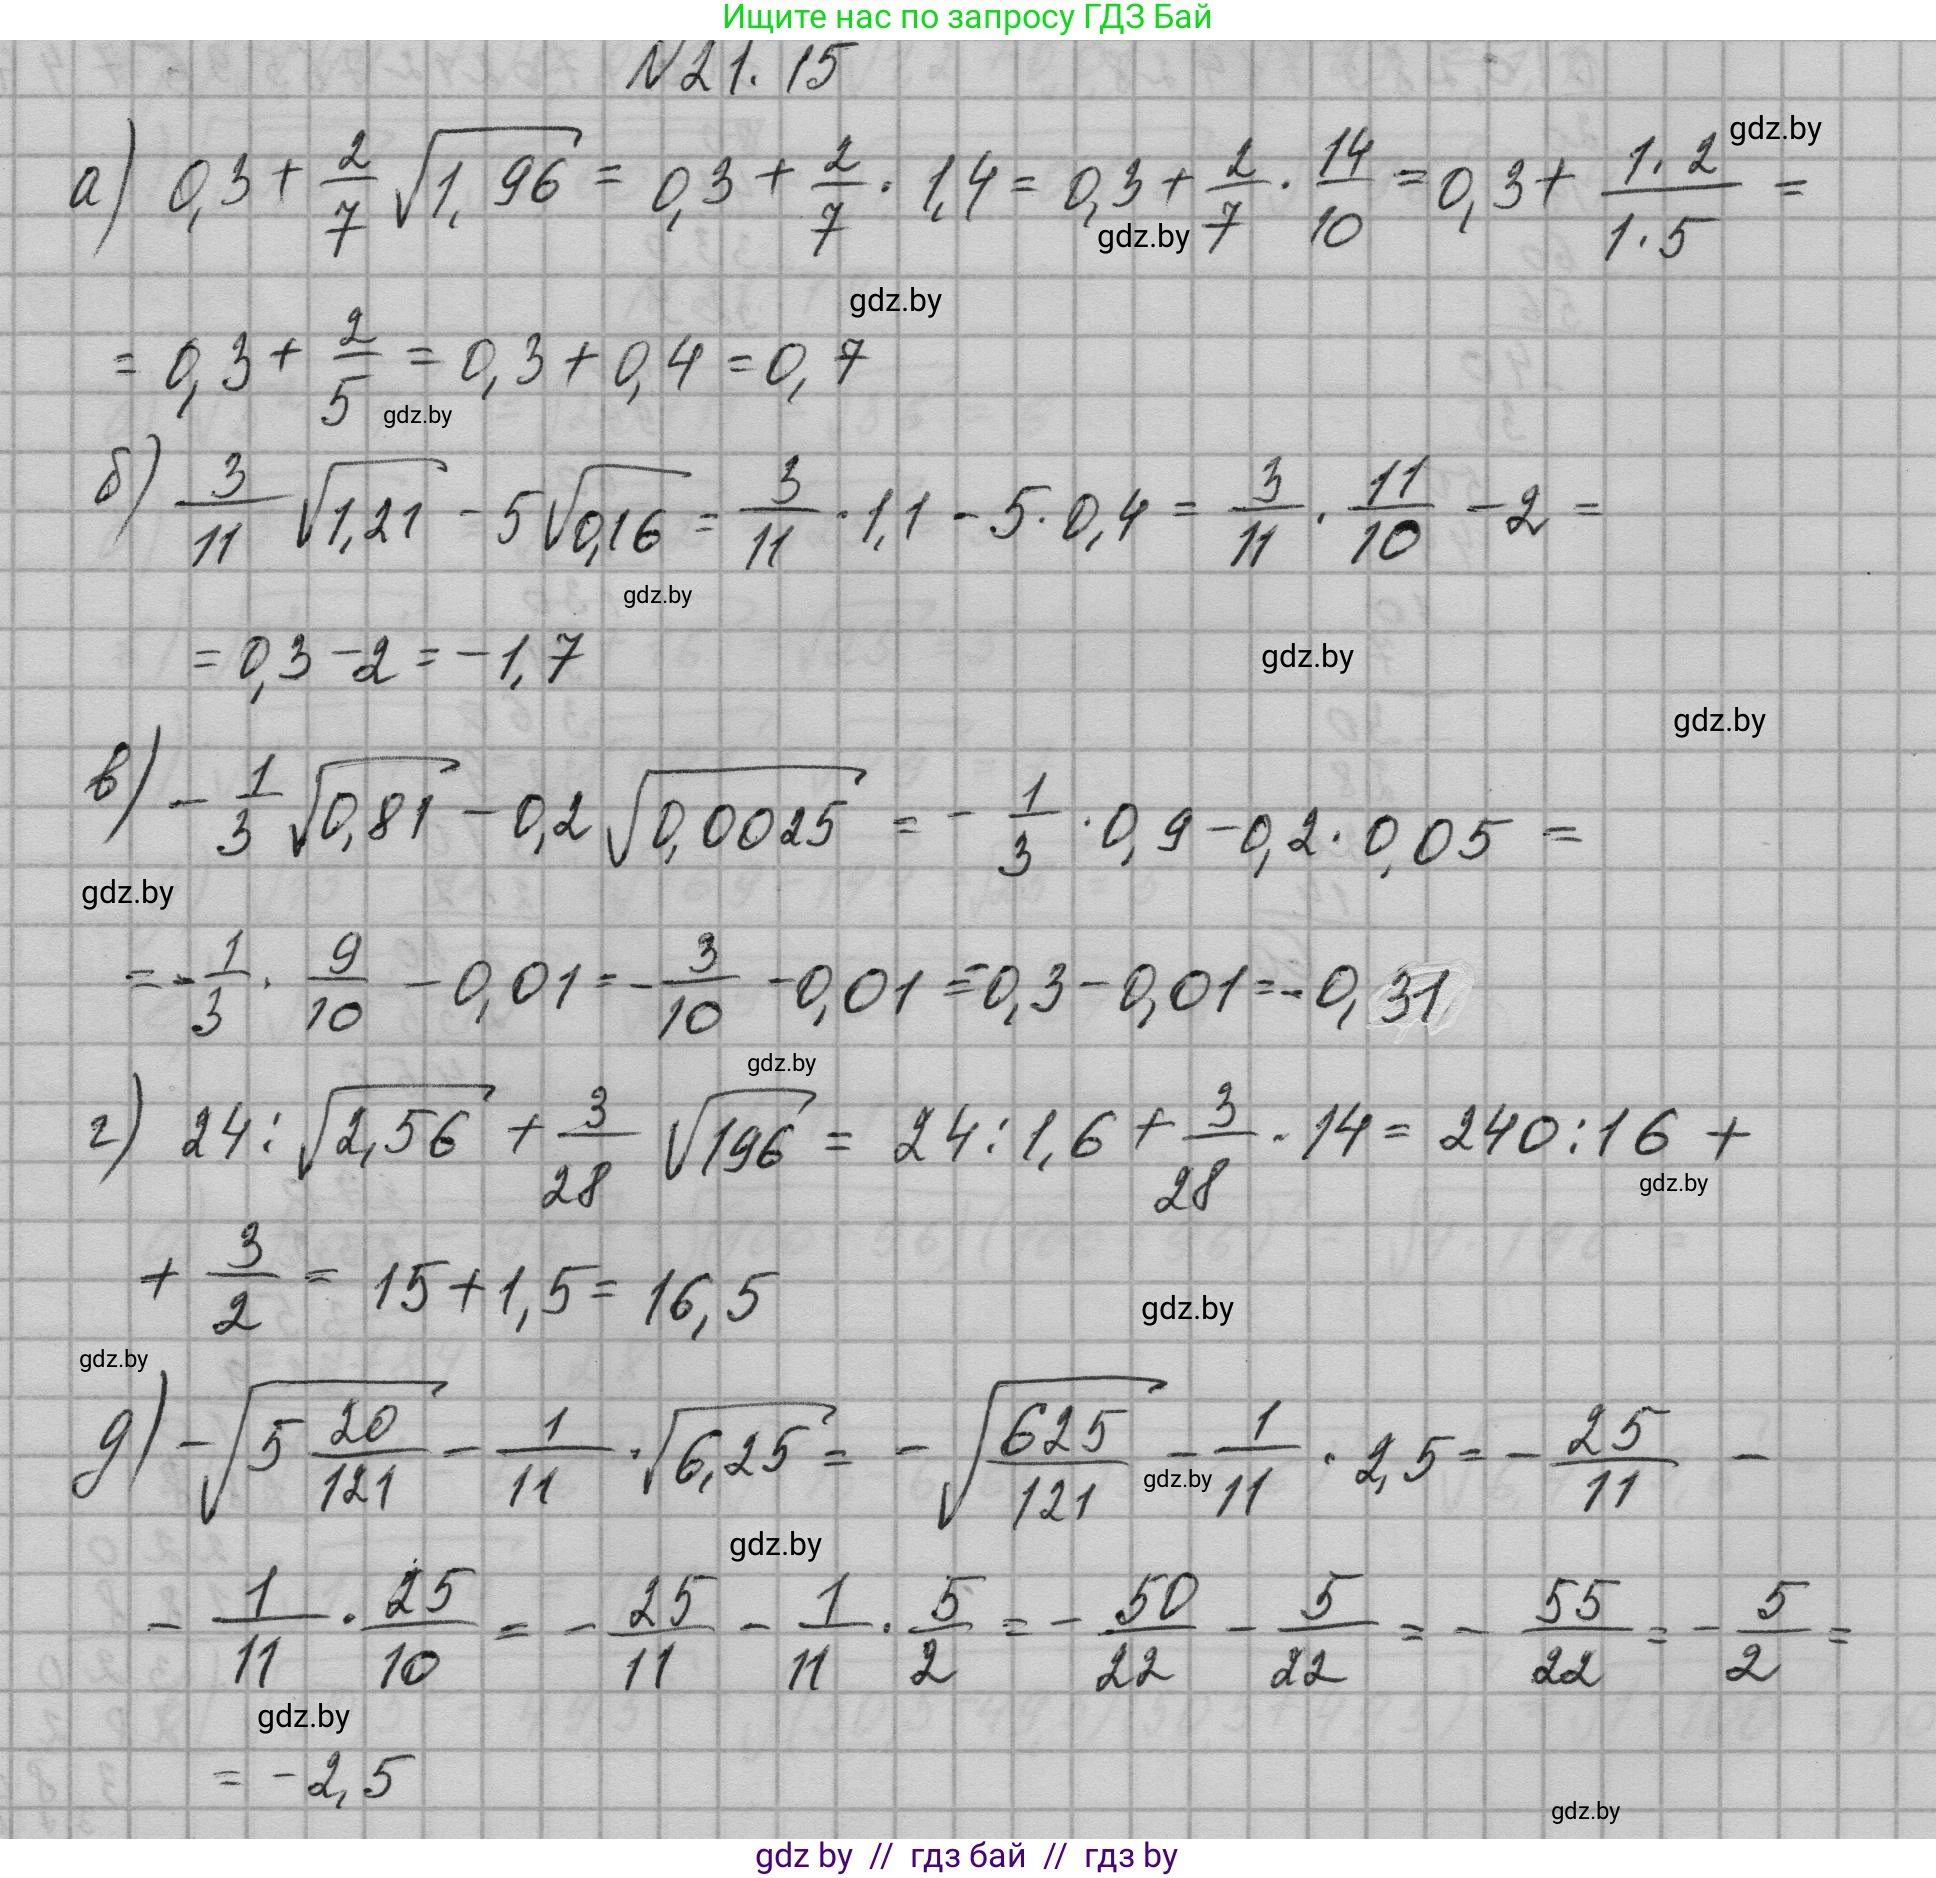 Ищите нас по запросу ГДЗ Бай
N21.15
gdz.by
а) 0,3 + 2/7 √1,96 = 0,3 + 2/7 · 1,4 = 0,3 + 2/7 · 14/10 = 0,3 + 1·2/1·5 =
gdz.by
gdz.by
= 0,3 + 2/5 = 0,3 + 0,4 = 0,7
gdz.by
б) 3/11 √1,21 - 5√0,16 = 3/11 · 1,1 - 5 · 0,4 = 3/11 · 11/10 - 2 =
gdz.by
= 0,3 - 2 = -1,7
gdz.by
gdz.by
в) - 1/3 √0,81 - 0,2 √0,0025 = - 1/3 · 0,9 - 0,2 · 0,05 =
gdz.by
= - 1/3 · 9/10 - 0,01 = - 3/10 - 0,01 = -0,3 - 0,01 = -0,31
gdz.by
г) 24 : √2,56 + 3/28 √196 = 24 : 1,6 + 3/28 · 14 = 240 : 16 +
gdz.by
+ 3/2 = 15 + 1,5 = 16,5
gdz.by
gdz.by
д) -√5 20/121 - 1/11 · √6,25 = - √625/121 - 1/11 · 2,5 = - 25/11 -
gdz.by
gdz.by
- 1/11 · 25/10 = - 25/11 - 1/11 · 5/2 = - 50/22 - 5/22 = - 55/22 = - 5/2 =
gdz.by
= -2,5
gdz.by
gdz by // гдз бай // гдз by